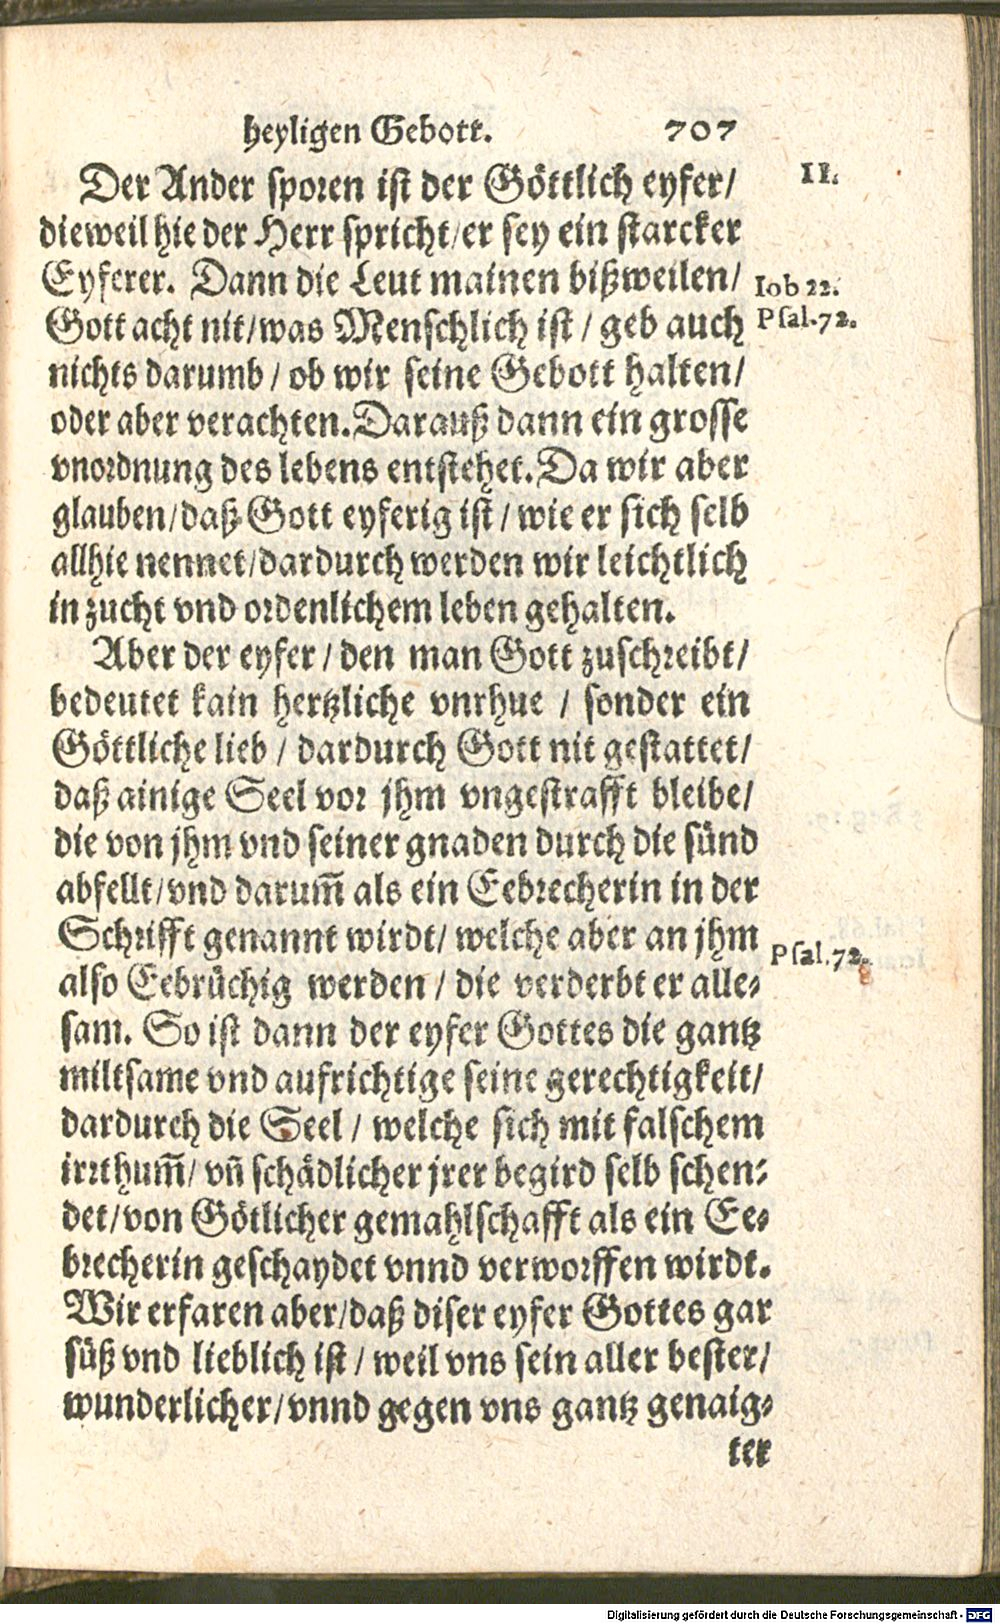 heyligen Gebott. 707
Der Ander sporen ist der Göttlich eyfer/
II.
dieweil hie der Herr spricht/er sey ein starcker
Eyferer. Dann die Leut mainen bißweilen/
Iob 22.
Gott acht nit/was Menschlich ist / geb auch
Psal.72.
nichts darumb / ob wir seine Gebott halten/
oder aber verachten. Darauß dann ein grosse
vnordnung des lebens entstehet. Da wir aber
glauben/daß Gott eyferig ist / wie er sich selb
allhie nennet/dardurch werden wir leichtlich
in zucht vnd ordenlichem leben gehalten.
Aber der eyfer / den man Gott zuschreibt/
bedeutet kain hertzliche vnrhue / sonder ein
Göttliche lieb / dardurch Gott nit gestattet/
daß ainige Seel vor jhm vngestrafft bleibe/
die von jhm vnd seiner gnaden durch die sünd
abfellt/vnd darum̃ als ein Eebrecherin in der
Schrifft genannt wirdt/ welche aber an jhm
Psal.72.
also Eebrüchig werden / die verderbt er alle-
sam. So ist dann der eyfer Gottes die gantz
miltsame vnd aufrichtige seine gerechtigkeit/
dardurch die Seel / welche sich mit falschem
irrthum̃/ vñ schädlicher jrer begird selb schen-
det/von Götlicher gemahlschafft als ein Ee-
brecherin geschaydet vnnd verworffen wirdt.
Wir erfaren aber/daß diser eyfer Gottes gar
süß vnd lieblich ist / weil vns sein aller bester/
wunderlicher/vnnd gegen vns gantz genaig-
ter
Digitalisierung gefördert durch die Deutsche Forschungsgemeinschaft - DFG